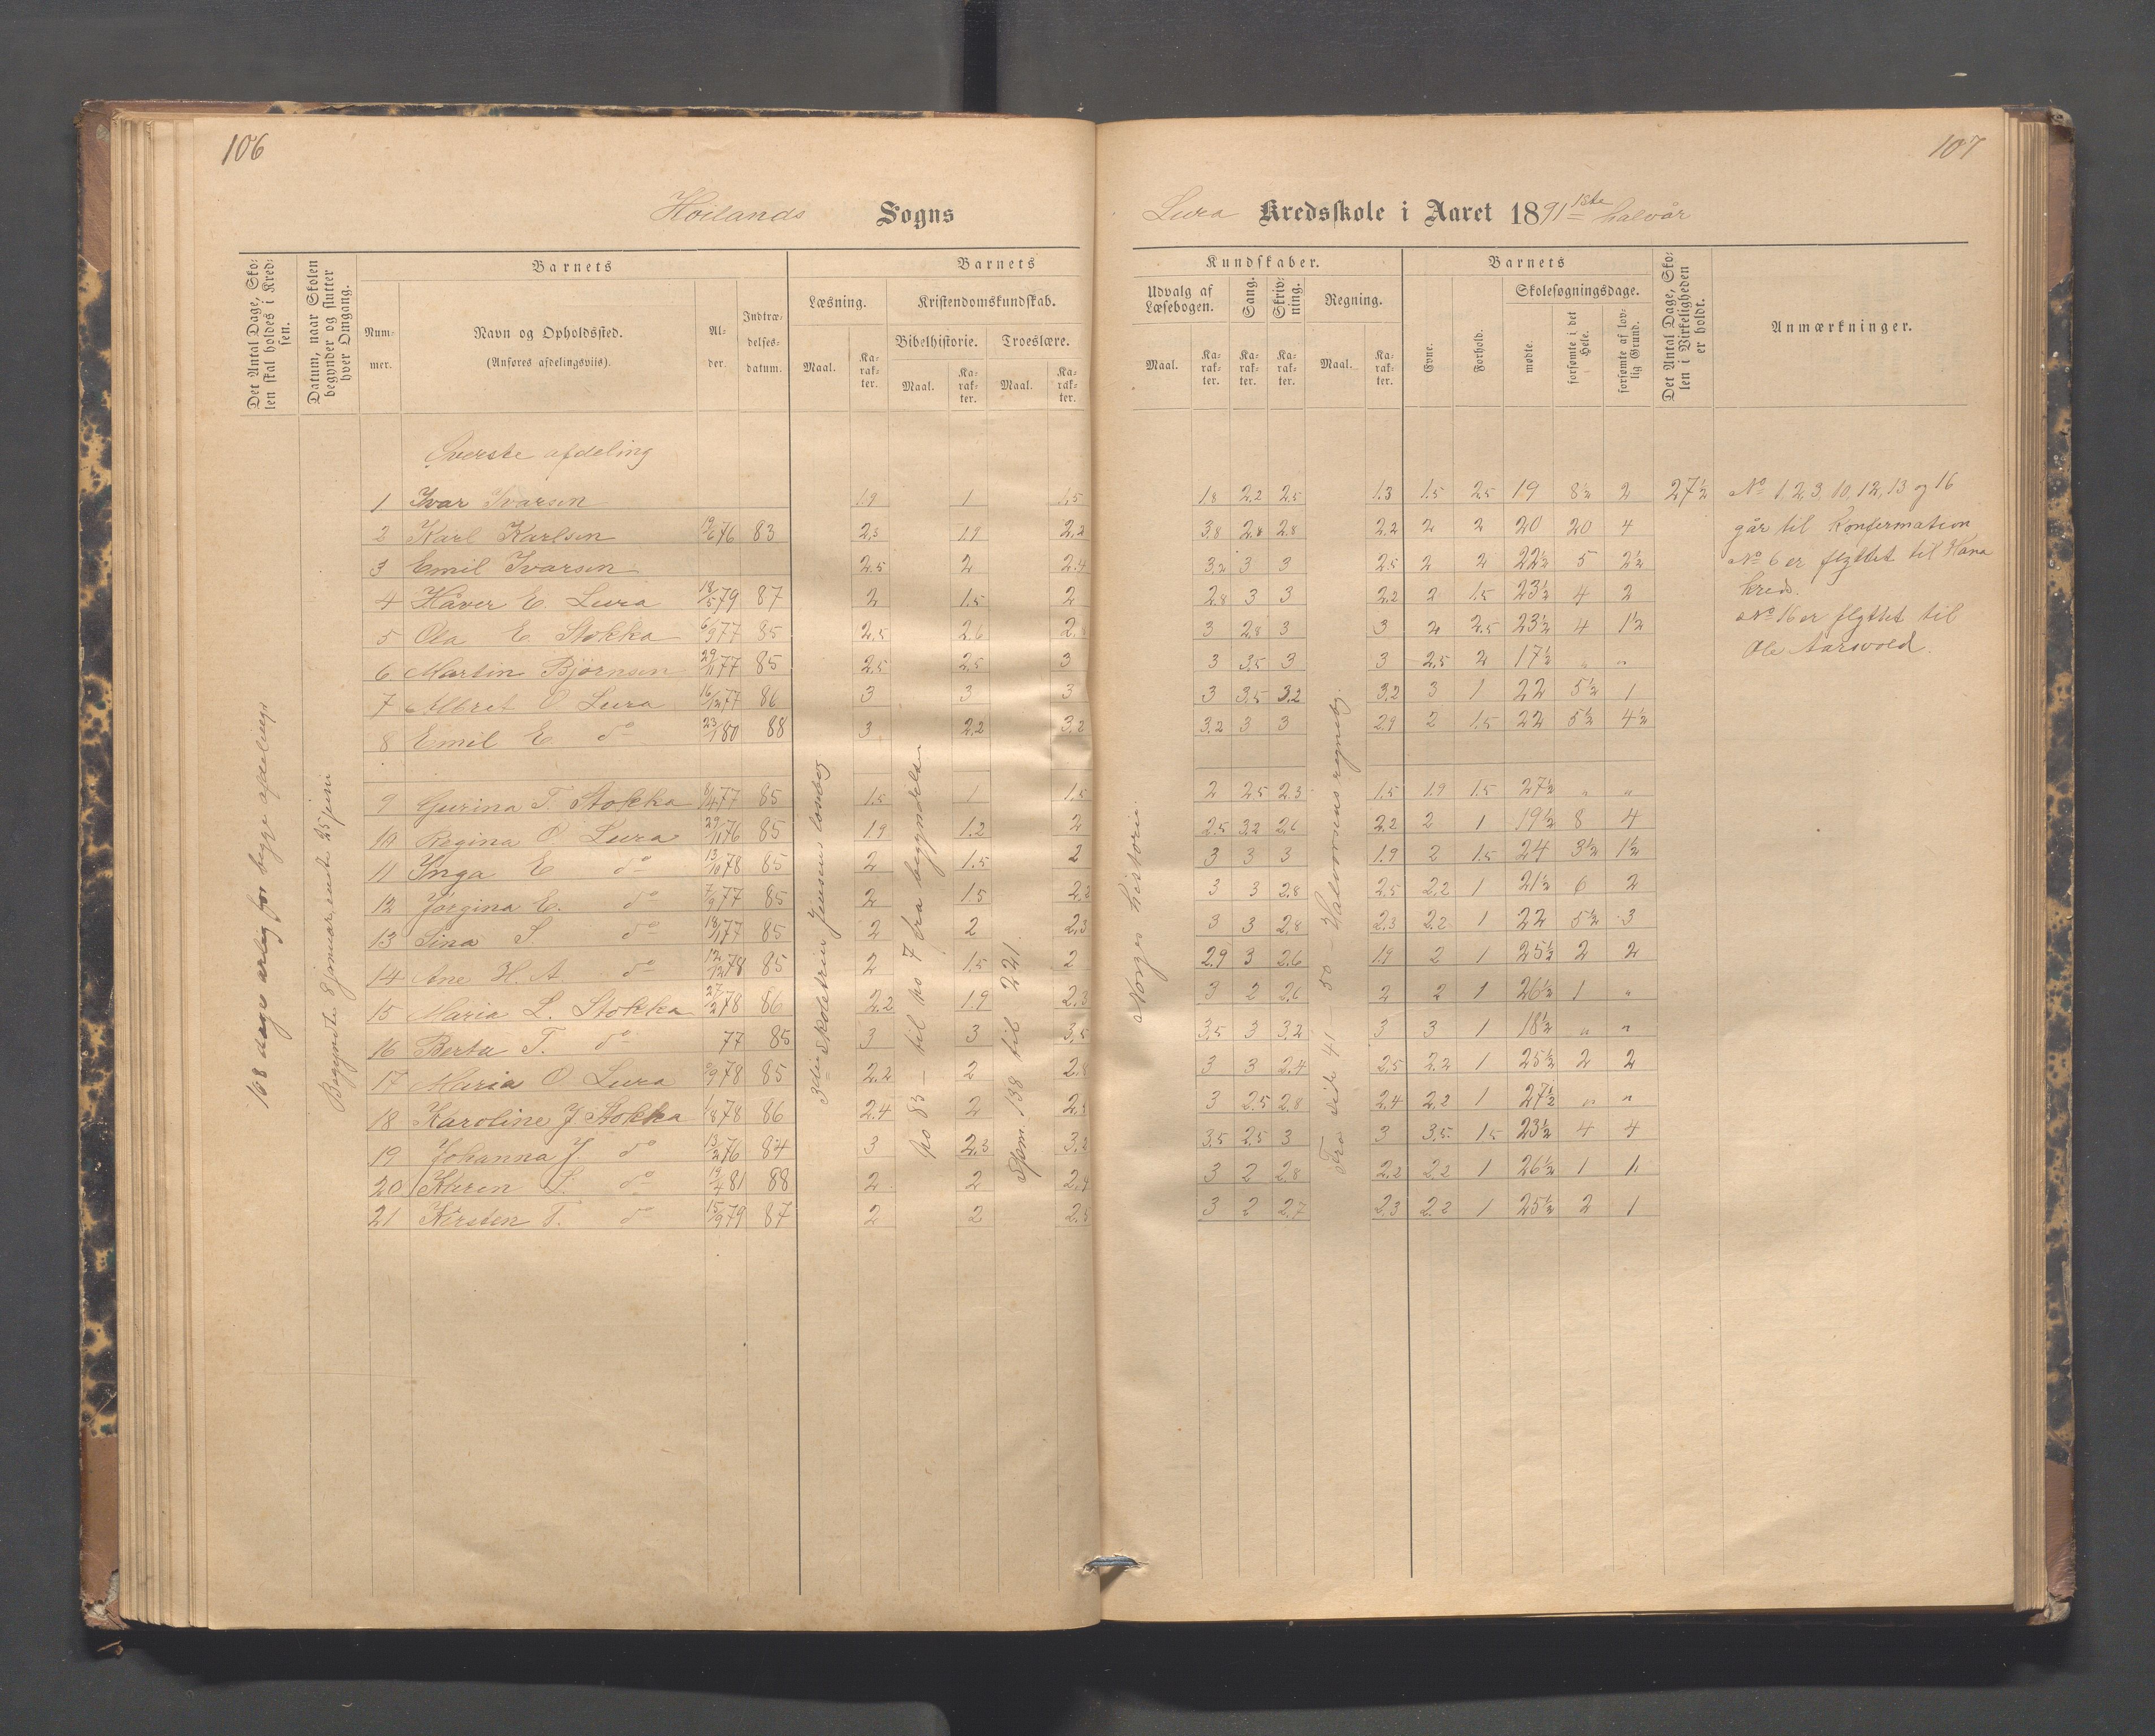 106
Höilands Sogns
Det Antal Dage, Skolen skal holdes i Kredsen.
Datum, naar Skolen begynder og slutter hver Omgang.
Barnets
Nummer.
Navn og Opholdssted.
(Anføres afdelingsviis).
Alder.
Indtrædelsesdatum.
Barnets
Læsning.
Kristendomskundskab.
Bibelhistorie.
Troeslære.
Maal.
Karakter.
Maal.
Karakter.
Maal.
Karakter.
168 dage årlig for begge afdelinger
Begyndte 8 januar, endte 25 juni
3die skoletrin Jensens læsebog
no 83 – til no 7 fra begyndelsen
Spm. 138 til 221
Øverste afdeling
1 Ivar Ivarsen 1.9 1 1.5
2 Karl Karlsen 19/6 76 83 2,5 1.9 2,2
3 Emil Ivarsen 2.5 2 2.4
4 Håver E. Lura 18/5 79 87 2 1.5 2
5 Ola E. Stokka 6/9 77 85 2,5 2.6
6 Martin Björnsen 29/11 77 85 2,5 2,5 3
7 Albret O Lura 16/12 77 86 3 3 3
8 Emil E. do 23/1 80 88 3 2,2 3,2
9 Gurina T. Stokka 8/4 77 85 1.5 1 1.5
10 Regina O Lura 29/11 76 85 1.9 1.2 2
11 Inga E do 13/10 78 85 2 1.5 2
12 Jorgina E. do 7/9 77 85 2 1.5 2,2
13 Sina S. do 18/1 77 85 2 2 2.3
14 Ane H. A. do 12/12 78 85 2 1.5 2
15 Maria L. Stokka 27/2 78 86 2.2 1.9 2.3
16 Berta T. do 77 85 3 3 3,5
17 Maria O. Lura 78 85 2.2 2 2.8
18 Karoline J. Stokka 1/8 78 86 2.4 2
19 Johanna J do 13/2 76 84 3 2.3 3,2
20 Karen L. do 19/4 81 88 2 2 2,4
21 Kirsten T. do 15/9 79 87 2 2 2.5
107
Lura Kredsskole i Aaret 1891 1ste halvår
Kundskaber.
Udvalg af Læsebogen.
Sang.
Skrivning.
Regning.
Maal.
Karakter.
Karakter.
Karakter.
Maal.
Karakter.
Barnets
Evne.
Forhold.
Skolesøgningsdage.
mødte.
forsømte i det Hele.
forsømte af lovlig Grund.
Det Antal Dage, Skolen i Virkeligheden er holdt.
Anmærkninger.
Norges historie.
Fra side 41 – 50 – Halvorsens regnebog.
1.8 2.2 2.5 1.3 1.5 2.5 19 8½ 2 27½
3,8 2.8 2.8 2.2 2 2 20 20 4
3,2 3 3 2.5 2 2 22½ 5 2½
2.8 3 3 2,2 2 1.5 23½ 4 2
3 2.8 3 3 2 2.5 23½ 4 1½
3 3,5 3 3 2,5 2 17½ " "
3 3,5 3,2 3,2 3 1 22 5½ 1
3,2 3 3 2.9 2 1.5 22 5½ 4½
2 2.5 2.3 1.5 1.9 1.5 27½ " "
2.5 3,2 2.6 2.2 2 1 19½ 8 4
3 3 3 1.9 2 1.5 24 3½ 1½
3 3 2.8 2,5 2,2 1 21½ 6 2
3 3 2,8 2.3 2.2 1 22 5½ 3
2.9 3 2.6 1.9 2 1 25½ 2 2
3 2 2.6 2 2 1 26½ 1 "
3,5 3 3,2 3 3 1 18½ " "
3 3 2.4 2,5 2.2 1 25½ 2 2
3 2.5 2.8 2.4 2,2 1 27½ " "
3,5 2,5 3 3 3,5 1.5 23½ 4 4
3 2 2.8 2,2 2,2 1 26½ 1 1
3 2 2.7 2.3 2.2 1 25½ 2 1
No 1, 2, 3, 10, 12, 13 og 16
går til Konfirmation
No 6 er flyttet til Hana
kreds.
No 16 er flyttet til
Ole Aarsvold.